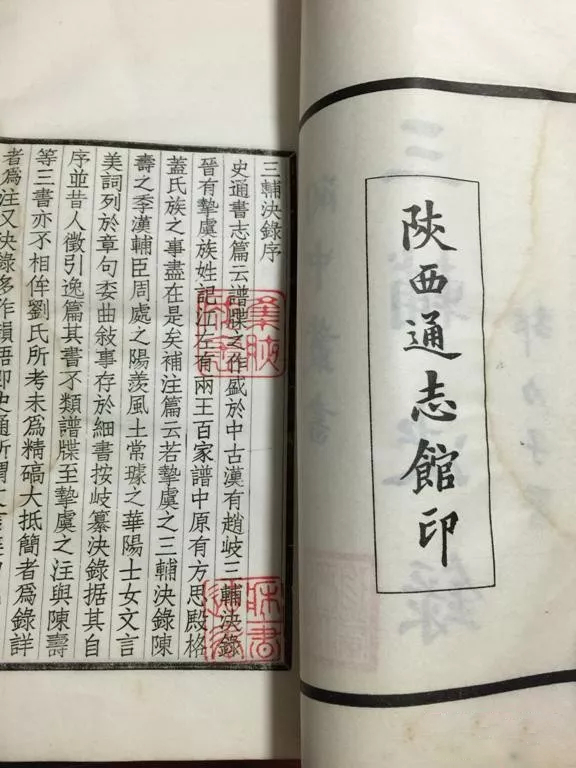 陝西通志館印
三輔決錄序
史通書志篇云譜牒之作盛於中古漢有趙岐三輔決錄
晉有摯虞族姓記江左有兩王百家譜中原有方思殿格
蓋氏族之事盡在是矣補注篇云若摯虞之三輔決錄陳
壽之季漢輔臣周處之陽羨風土常璩之華陽士女文言
美詞列於章句委曲敍事存於細書按岐纂決錄据其自
序並昔人徵引逸篇其書不類譜牒至摯虞之注與陳壽
等三書亦不相侔劉氏所考未爲精碻大抵簡者爲錄詳
者爲注又決錄多作韻語即史通所謂